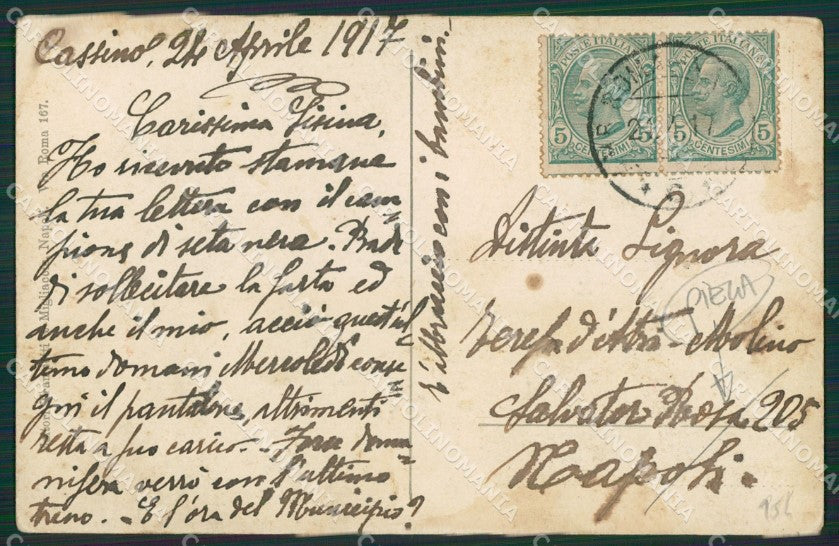 Cassino, 24 Aprile 1917
Carissima Sisina,
Ho ricevuto stamane
la tua lettera con il cam-
pione di seta nera. Bada
di sollecitare la sarta ed
anche il mio, acciò quest'ul
timo domani Mercoledì conse
gni il pantalone, altrimenti
resta a suo carico. - Forse doma-
ni sera verrò con l'ultimo
treno. - E l'ora del Municipio?
V'abbraccio con i bambini.
POSTE ITALIANE
POSTE ITALIANE
5 CENTESIMI 5
5 CENTESIMI 5
Distinta Signora
Teresa d'Atri-Molino
Salvator Rosa 205
Napoli.
PIEGA
Napoli
Roma 167.
CARTOLINOMANIA